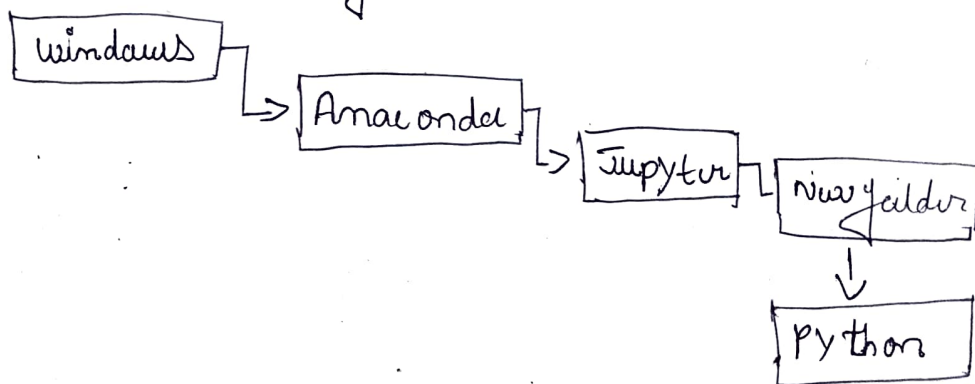 Windows
Anaconda
Jupyter
New folder
Python